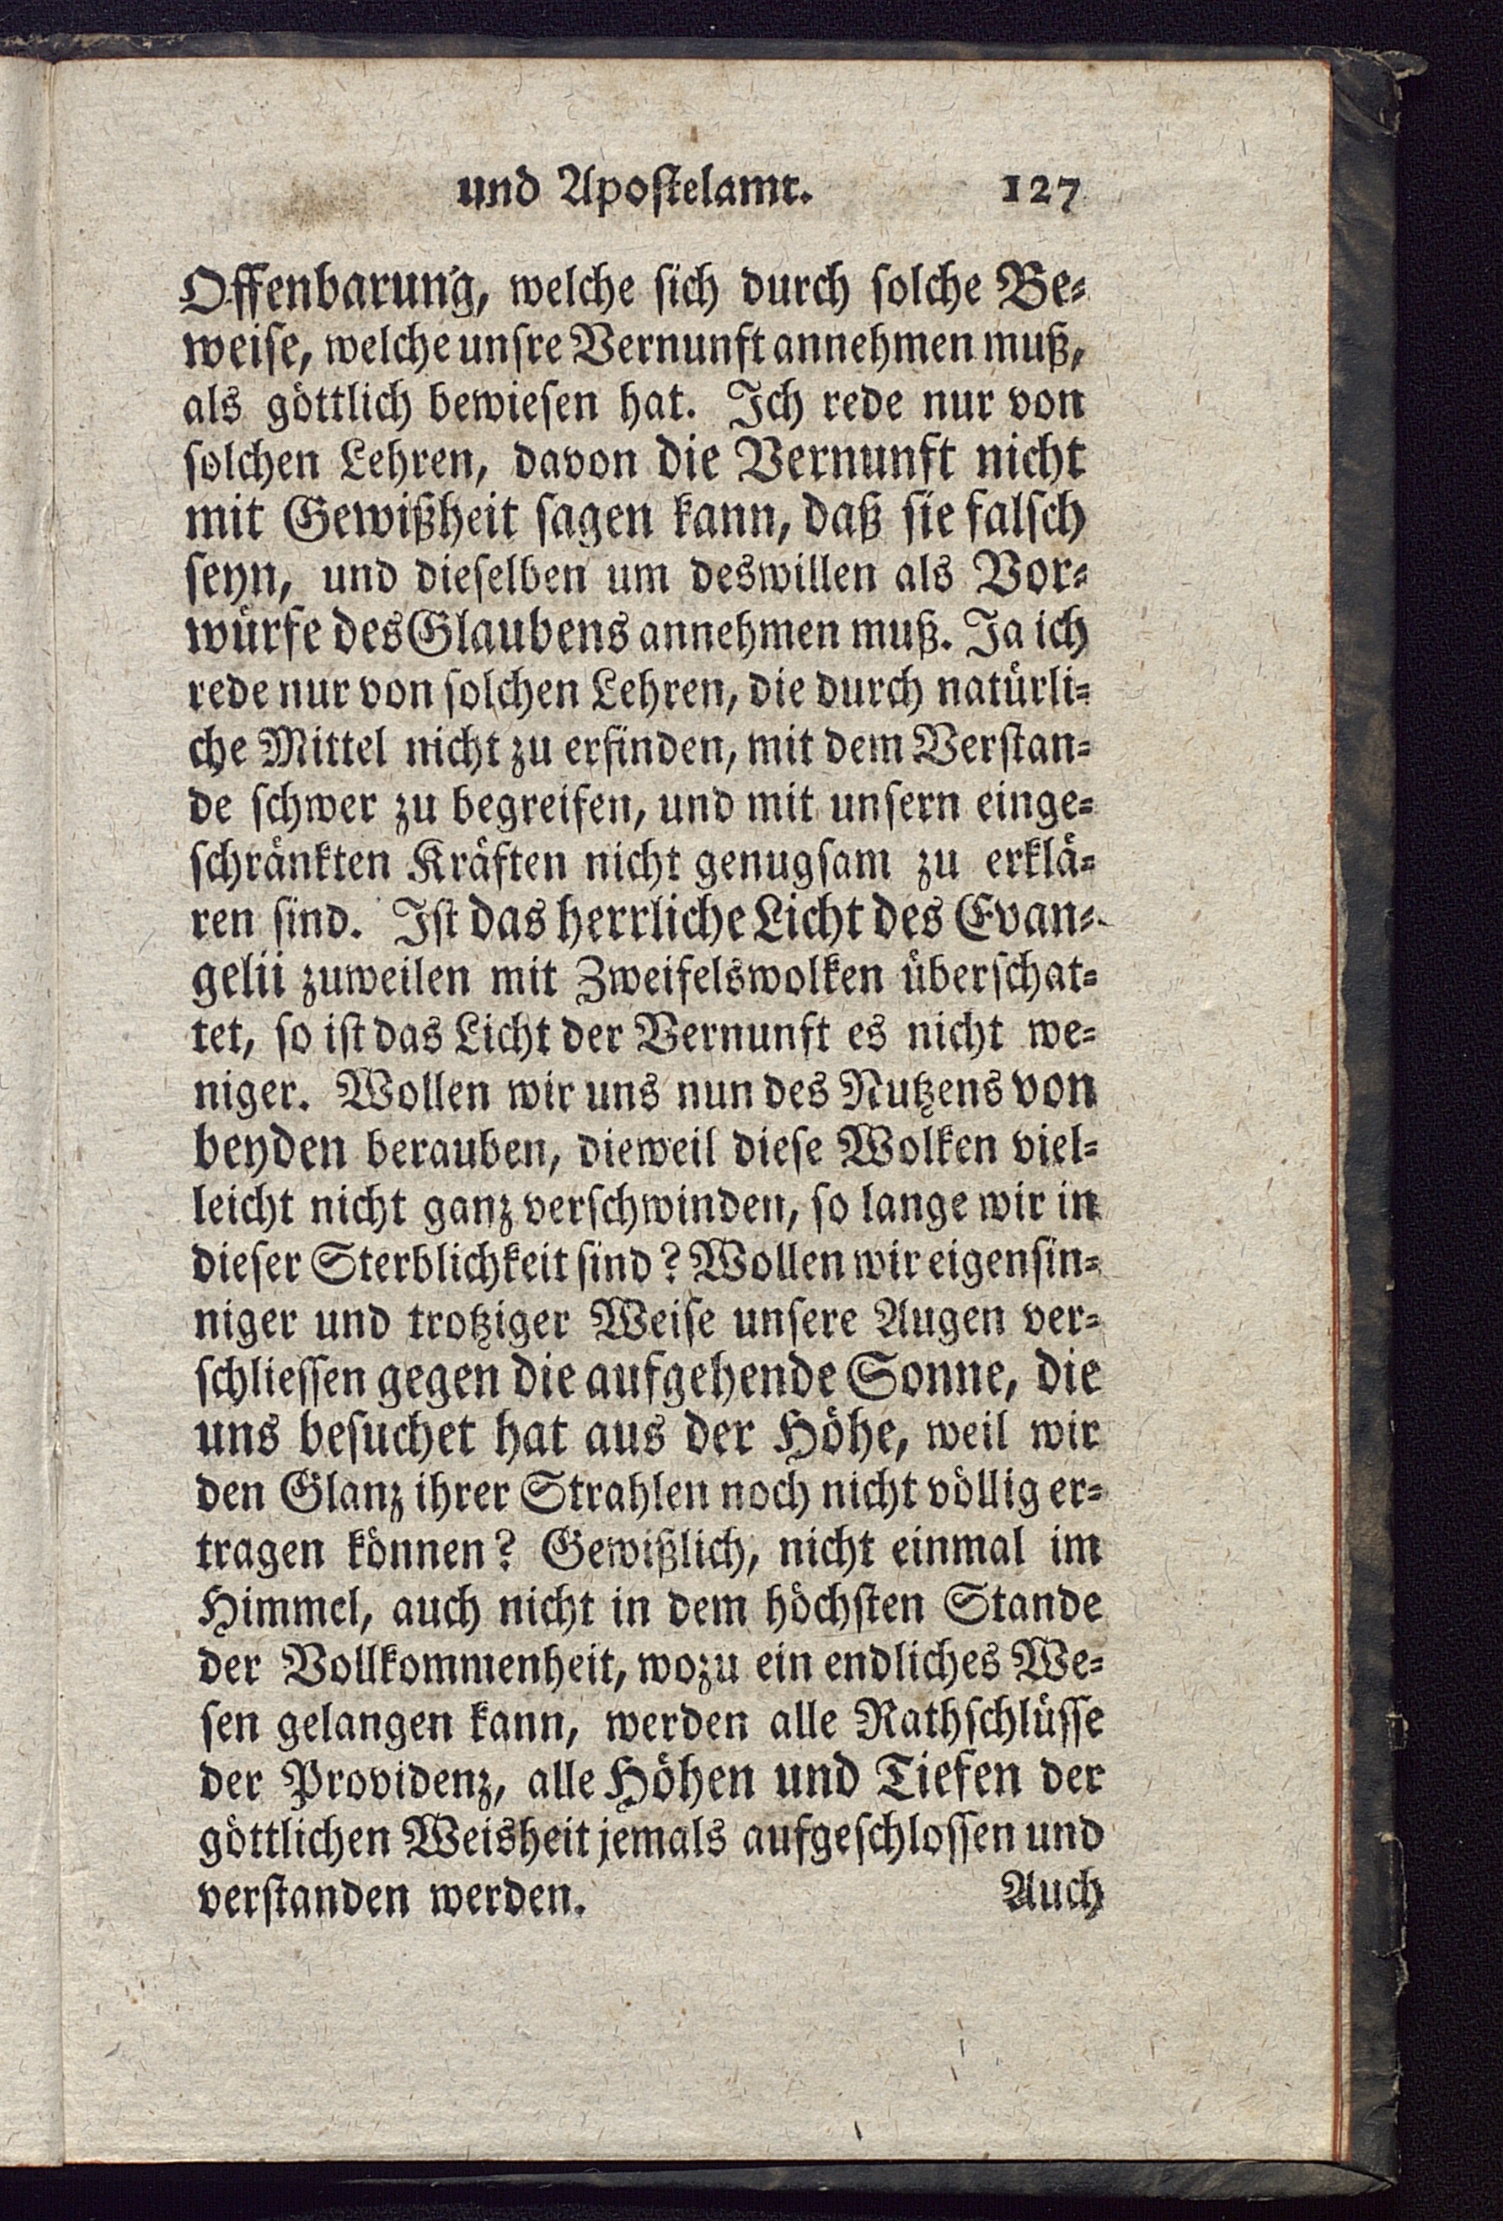 und Apostelamt. 127
Offenbarung, welche sich durch solche Be-
weise, welche unsre Vernunft annehmen muß,
als göttlich bewiesen hat. Ich rede nur von
solchen Lehren, davon die Vernunft nicht
mit Gewißheit sagen kann, daß sie falsch
seyn, und dieselben um deswillen als Vor-
würfe des Glaubens annehmen muß. Ja ich
rede nur von solchen Lehren, die durch natürli-
che Mittel nicht zu erfinden, mit dem Verstan-
de schwer zu begreifen, und mit unsern einge-
schränkten Kräften nicht genugsam zu erklä-
ren sind. Ist das herrliche Licht des Evan-
gelii zuweilen mit Zweifelswolken überschat-
tet, so ist das Licht der Vernunft es nicht we-
niger. Wollen wir uns nun des Nutzens von
beyden berauben, dieweil diese Wolken viel-
leicht nicht ganz verschwinden, so lange wir in
dieser Sterblichkeit sind? Wollen wir eigensin-
niger und trotziger Weise unsere Augen ver-
schliessen gegen die aufgehende Sonne, die
uns besuchet hat aus der Höhe, weil wir
den Glanz ihrer Strahlen noch nicht völlig er-
tragen können? Gewißlich, nicht einmal im
Himmel, auch nicht in dem höchsten Stande
der Vollkommenheit, wozu ein endliches We-
sen gelangen kann, werden alle Rathschlüsse
der Providenz, alle Höhen und Tiefen der
göttlichen Weisheit jemals aufgeschlossen und
verstanden werden. Auch